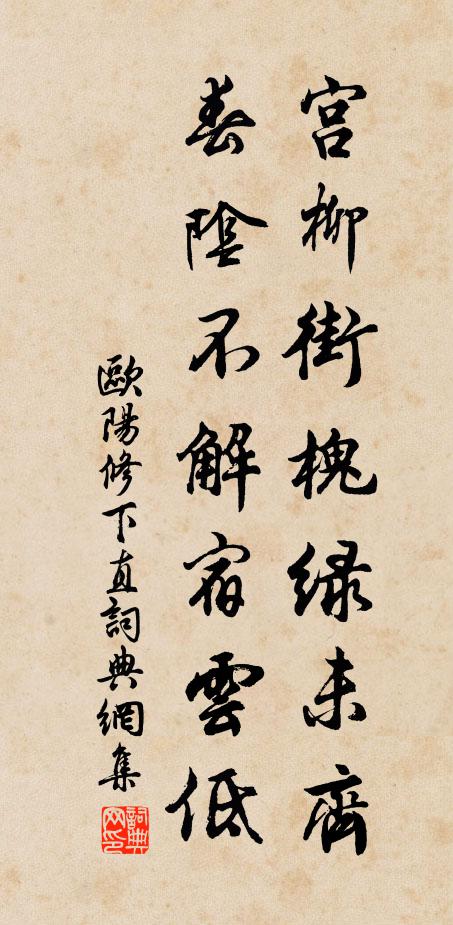 宫柳街槐緑未齊
春陰不解宿雲低
歐陽修下直詞典網集
詞典网印